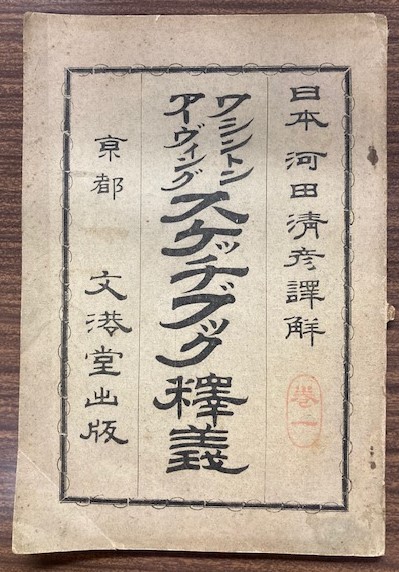 日本 河田清彦譯解
卷二
ワシントン
アーヴィング
スケッチブック釋義
京都 文港堂出版